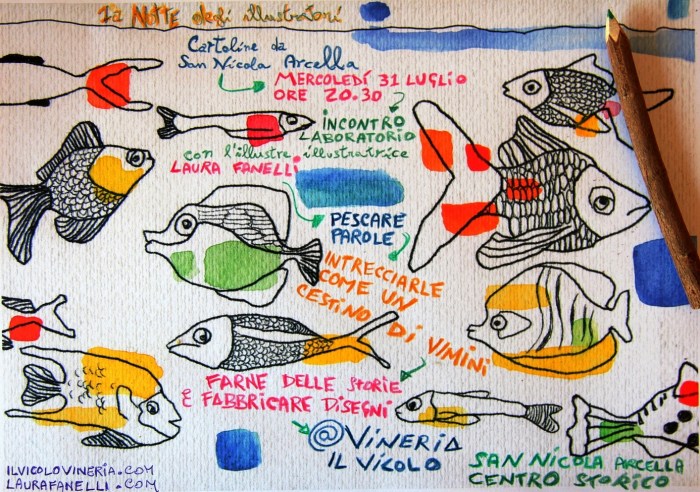 La NOTTE degli illustratori
Cartoline da
San Nicola Arcella
MERCOLEDÍ 31 LUGLIO
ORE 20.30
INCONTRO
LABORATORIO
con l'illustre illustratrice
LAURA FANELLI
PESCARE
PAROLE
INTRECCIARLE
COME UN
CESTINO DI VIMINI
FARNE DELLE STORIE
E FABBRICARE DISEGNI
@VINERIA
IL VICOLO
SAN NICOLA ARCELLA
CENTRO STORICO
ILVICOLOVINERIA.COM
LAURAFANELLI.COM